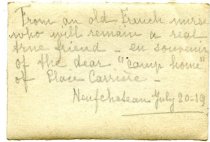 From an old French nurse
who will remain a real
true friend - en souvenir
of the dear "camp home"
of Place Carrière -
Neufchateau July 20-19